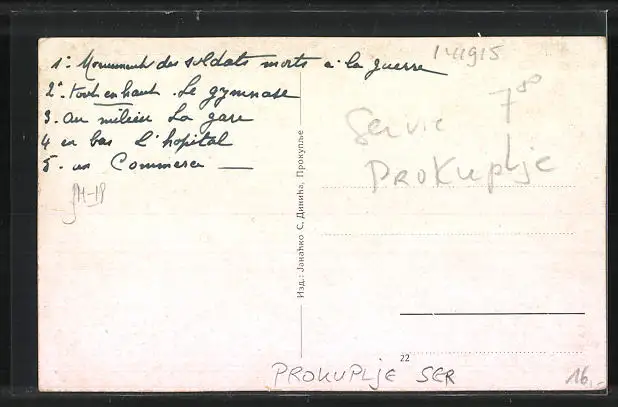 1º. Monument des soldats morts à la guerre
2º. tout en haut. Le gymnase
3. au milieu La gare
4 en bas L'hopital
5. un Commerce —
JH-18
141915
7⁸⁰
Servie
Prokuplje
Изд.: Јанаћко С. Динића, Прокупље
22
PROKUPLJE SER
16,-